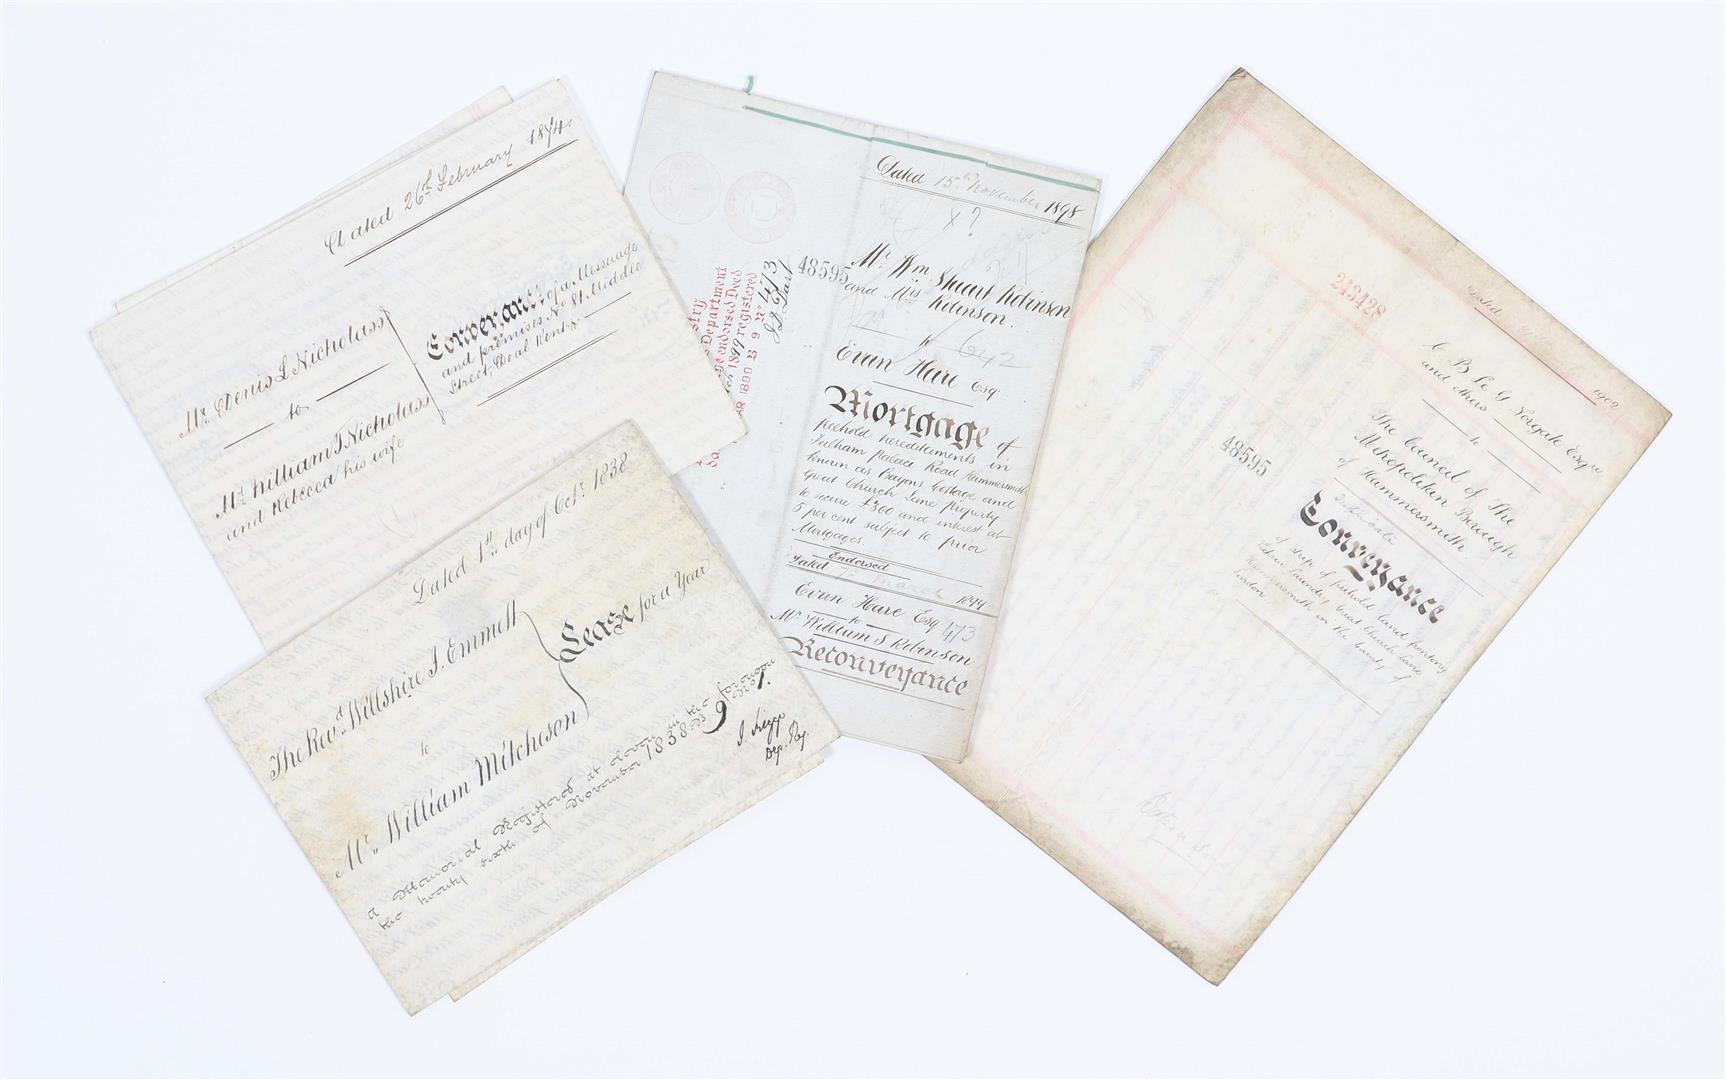 Dated 26th February 1874.
Mr. Denis L Nicholass
to
Mr. William J Nicholass
and Rebecca his wife
Conveyance of a Messuage
and premises No 81 Middle
Street, Deal Kent
Dated 1st day of Octr. 1838
The Revd. Willshire J. Emmett
to
Mr. William Mitcheson
Lease for a Year
A Memorial Registered at eleven in the forenoon
the twenty sixth of November 1838. B 9 No
Dep. Reg.
Dated 15th November 1898
X ?
48595
Mr. Wm Stuart Robinson
and Mrs Robinson.
to 642
Evan Hare Esq
Mortgage of
freehold hereditaments in
Fulham Palace Road Hammersmith
known as Bayons Cottage and
Great Church Lane property
to secure £300 and interest at
5 per cent subject to prior
Mortgages.
Endorsed
dated 7th March 1899
Evan Hare Esq
to 473
Mr William S Robinson
Reconveyance
Department
endorsed Deed
1899 registered
MAR 1899 B 9 No 473
243428
Dated 1902
C B Le G Norgate Esqre
and others
to
The Council of The
Metropolitan Borough
of Hammersmith
48595
Duplicate
Conveyance
of strip of freehold land fronting
Laundry Great Church Lane
Hammersmith in the County of
London